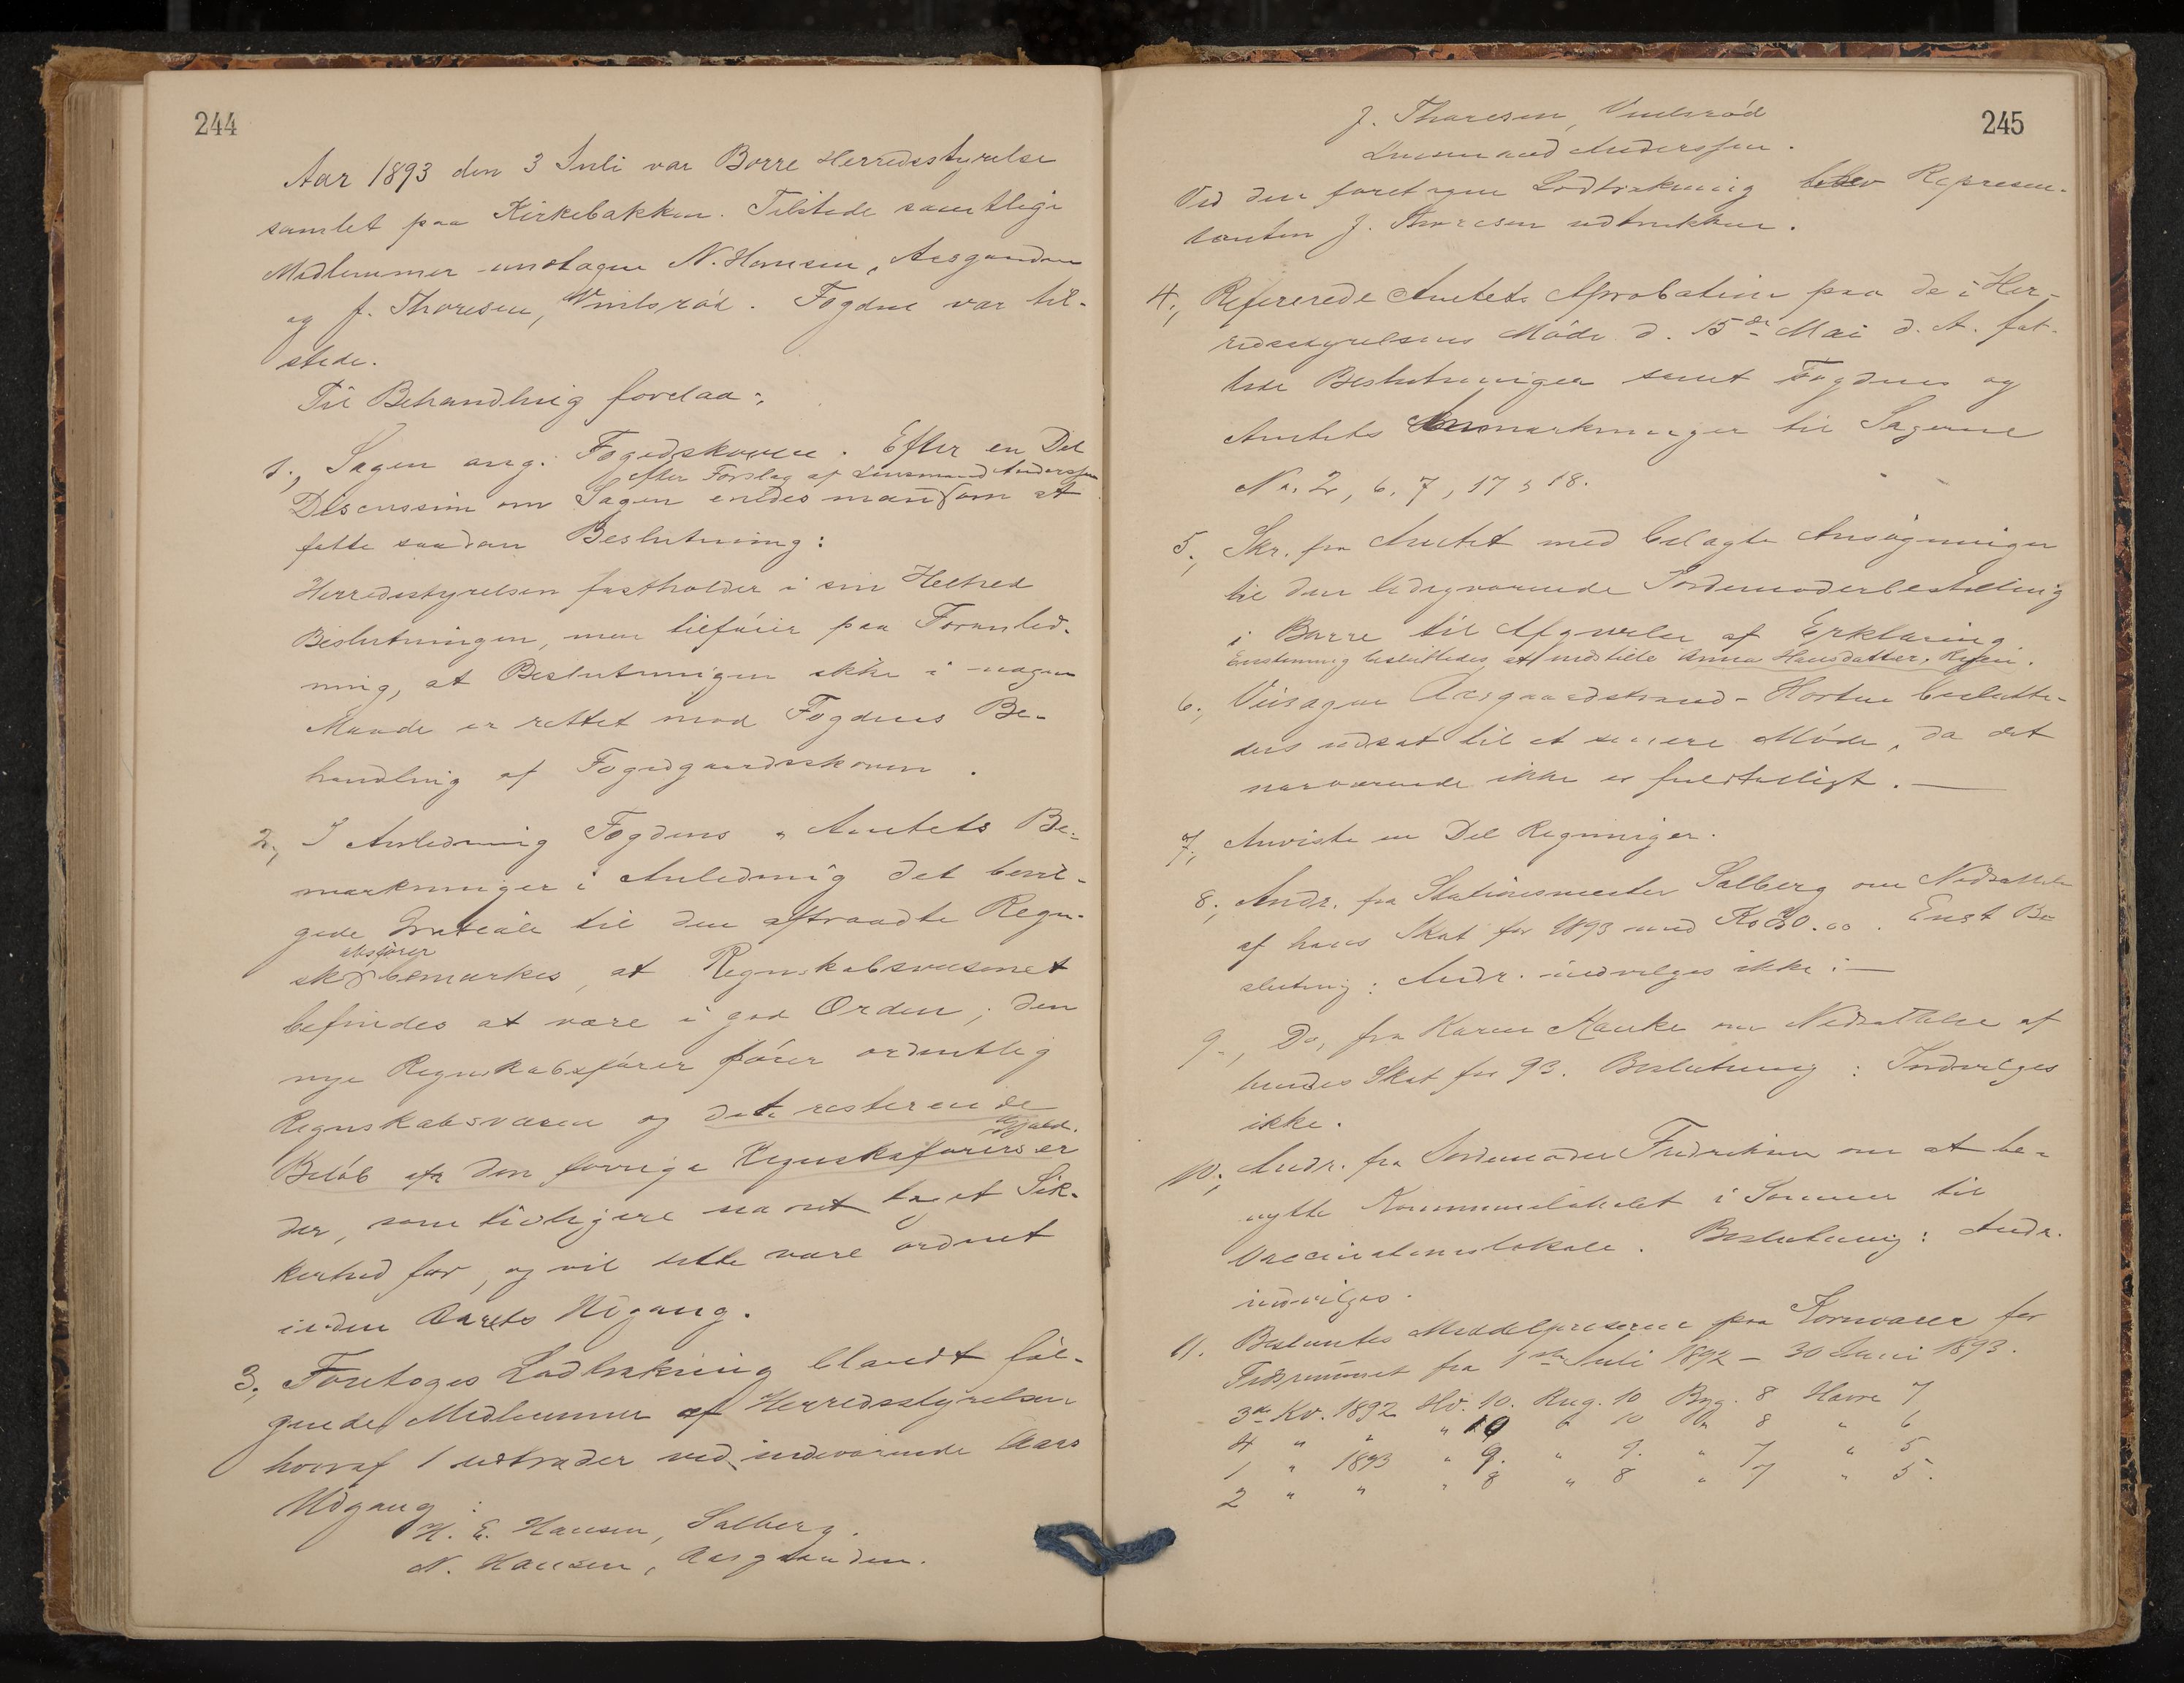 244
Aar 1893 den 3 Juli var Borre Herredsstyrelse
samlet paa Kirkebakken. Tilstede samtlige
Medlemmer undtagen N. Hansen, Aasgaarden
og J. Thoresen, Vindsröd. Fogden var til-
stede.
Til Behandling forelaa:
1., Sagen ang. Fogedskoven. Efter en Del
efter Forslag af Lensmand Anderssen
Discussion om Sagen enedes man om at
fatte saadan Beslutning:
Herredsstyrelsen fastholder i sin Helhed
Beslutningen, men tilföier paa Foranled-
ning, at Beslutningen ikke i nogen
Maade er rettet mod Fogdens Be-
handling af Fogedgaardsskoven.
2., I Anledning Fogdens & Amtets Be-
mærkninger i Anledning det bevil-
gede Gratiale til den aftraadte Regn-
absförer
sk bemærkes, at Regnskabsvæsenet
befindes at være i god Orden; den
nye Regnskabsförer förer ordentlig
Regnskabsvæsen og det resterende
Beløb fra den forrige Regnskaförers er
der, som tidligere nævnt taget Sik-
kerhed for, og vil dette være ordnet
inden Aarets Udgang.
3., Foretoges Lodtrækning blandt föl-
gende Medlemmer af Herredsstyrelsen
hvoraf 1 udtræder ved indeværende Aars
Udgang:
H. E. Hansen, Solberg.
N. Hansen, Aasgaarden.
245
J. Thoresen, Vindsröd
Lensmand Anderssen.
Ved den foretagne Lodtrækning blev Represen-
tanten J. Thoresen udtrukken.
4., Refererede Amtets Aprobation paa de i Her-
redsstyrelsens Möde d. 15de Mai d. A. fat-
tede Beslutninger samt Fogdens og
Amtets Anmærkninger til Sagerne
No. 2, 6, 7, 17 & 18.
5., Skr. fra Amtet med bilagte Ansögninger
til den ledigværende Jordemoderbestilling
i Borre til Afgivelse af Erklæring
Enstemmig besluttedes at indstille Anna Hansdatter,
6., Veisagen Aasgaardstrand - Horten beslutte-
des udsat til et senere Möde, da det
nærværende ikke er fuldtalligt. —
7., Anviste en Del Regninger.
8., Andr. fra Stationsmester Solberg om Nedsættelse
af hans Skat for 1893 med Kr 30.00. Enst Be-
slutning: Andr. indvilges ikke: —
9., Do, fra Karen Hauke om Nedsættelse af
hendes Skat for 93. Beslutning: Indvilges
ikke.
10., Andr. fra Jordemoder Fredriksen om at be-
nytte Kommunelokalet i Sommer til
Vaccinationslokale. Beslutning: Andr.
indvilges.
11. Bestemtes Middelpriserne paa Kornvarer for
Tidsrummet fra 1ste Juli 1892 - 30 Juni 1893.
3de Kv. 1892 Hv. 10. Rug. 10 Byg. 8 Havre 7
4 " " " 10 " 10 " 8 " 6
1 " 1893 " 9. " 9. " 7 " 5
2 " " " 8 " 8 " 7 " 5.